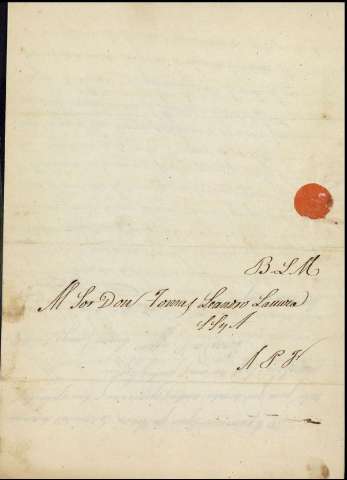 B L M
Mr Sor Don Tomas Leandro
S S y A
A P F